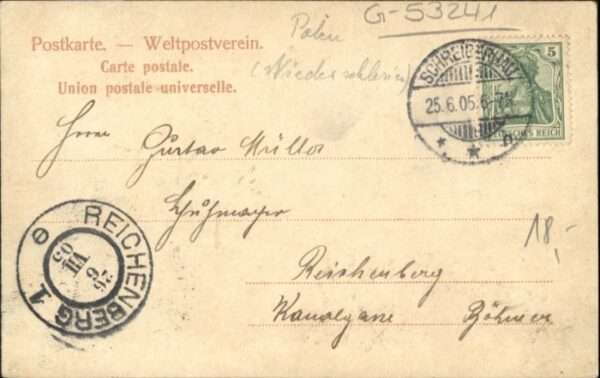 G-53241
Polen
(Niederschlesien)
Postkarte. — Weltpostverein.
Carte postale.
Union postale universelle.
SCHREIBERHAU
25.6.05.6-7N.
5
DEUTSCHES REICH
Herrn Gustav Müller
Schuhmayer
18,-
Reichenberg
Kanalgane Böhmen
REICHENBERG 1
26
6
VII
05
e